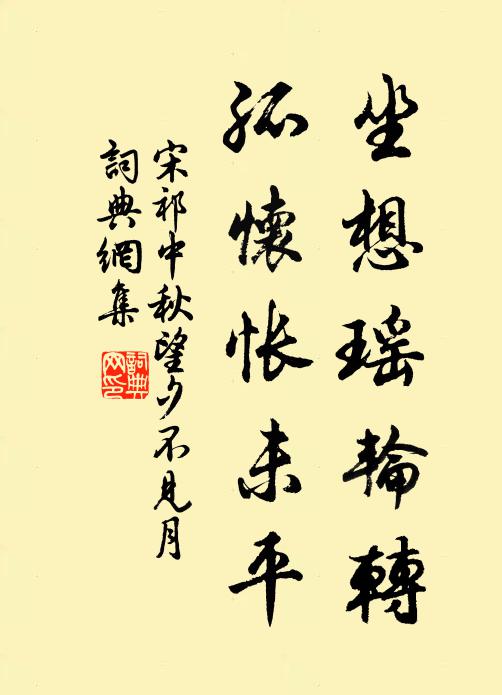 坐想瑶輪轉
孤懷悵未平
宋祁中秋望夕不見月
詞典網集
詞典網印